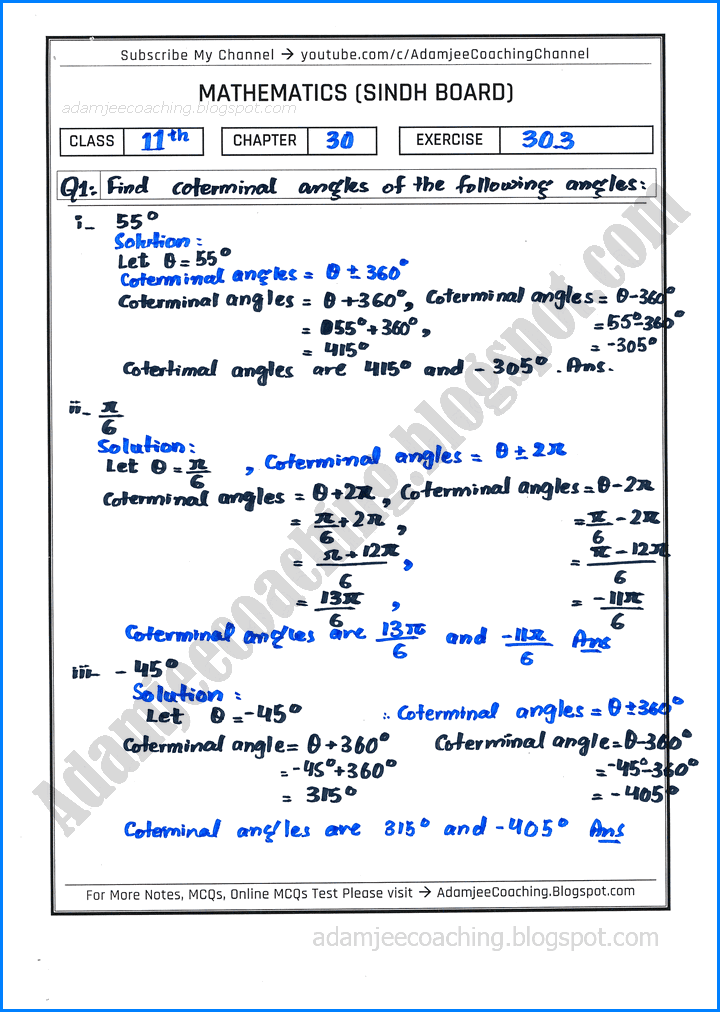 Subscribe My Channel → youtube.com/c/AdamjeeCoachingChannel
MATHEMATICS (SINDH BOARD)
adamjeecoaching.blogspot.com
CLASS 11th CHAPTER 30 EXERCISE 30.3
Q1: Find coterminal angles of the following angles:
i- 55°
Solution:
Let θ = 55°
Coterminal angles = θ ± 360°
Coterminal angles = θ + 360°, Coterminal angles = θ - 360°
= 055° + 360°, = 55° - 360°
= 415° = -305°
Cotertimal angles are 415° and -305°. Ans.
ii- π/6
Solution:
Let θ = π/6, Coterminal angles = θ ± 2π
Coterminal angles = θ + 2π, Coterminal angles = θ - 2π
= π/6 + 2π, = π/6 - 2π
= π + 12π/6, = π - 12π/6
= 13π/6, = -11π/6
Coterminal angles are 13π/6 and -11π/6 Ans
iii- -45°
Solution:
Let θ = -45° ∴ Coterminal angles = θ ± 360°
Coterminal angle = θ + 360° Coterminal angle = θ - 360°
= -45° + 360° = -45° - 360°
= 315° = -405°
Coterminal angles are 315° and -405° Ans
Adamjeecoaching.blogspot.com
For More Notes, MCQs, Online MCQs Test Please visit → AdamjeeCoaching.Blogspot.com
adamjeecoaching.blogspot.com